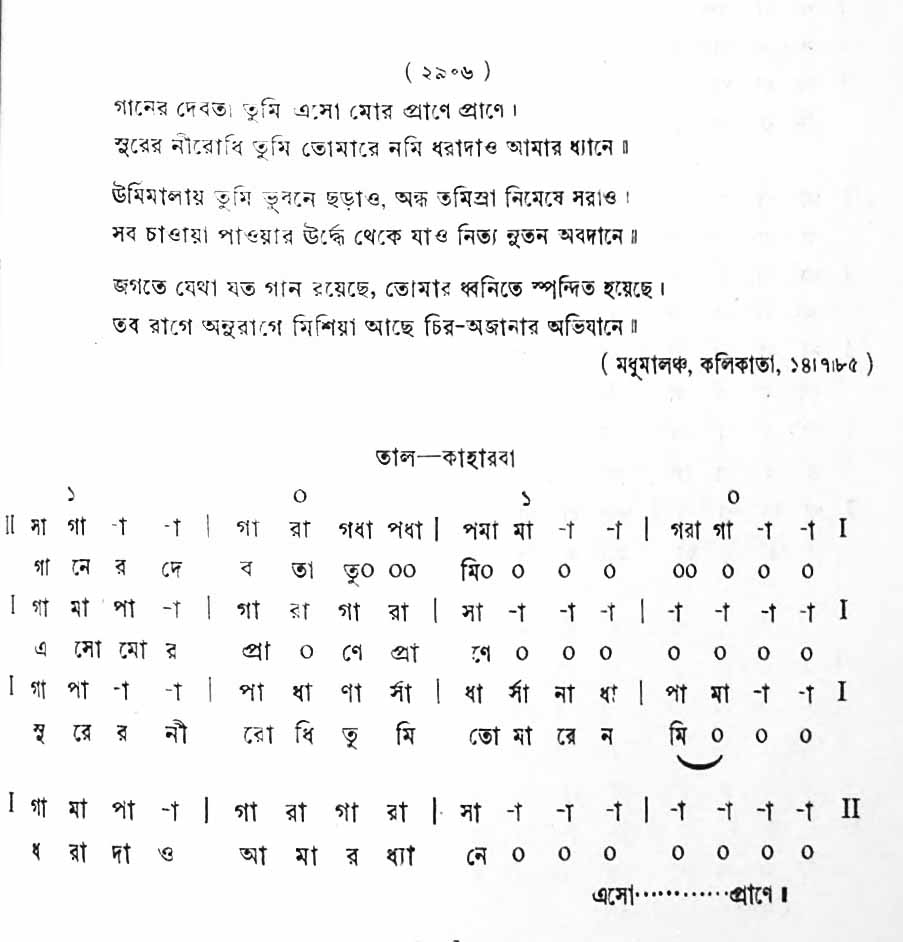 ( ২৯০৬ )
গানের দেবতা তুমি এসো মোর প্রাণে প্রাণে।
সুরের নীরোধি তুমি তোমারে নমি ধরাদাও আমার ধ্যানে॥
ঊর্মিমালায় তুমি ভুবনে ছড়াও, অন্ধ তমিস্রা নিমেষে সরাও।
সব চাওয়া পাওয়ার ঊর্দ্ধে থেকে যাও নিত্য নুতন অবদানে॥
জগতে যেথা যত গান রয়েছে, তোমার ধ্বনিতে স্পন্দিত হয়েছে।
তব রাগে অনুরাগে মিশিয়া আছে চির-অজানার অভিযানে॥
( মধুমালঞ্চ, কলিকাতা, ১৪।৭।৮৫ )
তাল—কাহারবা
১ ০ ১ ০
II সা গা -া -া | গা রা গধা পধা | পমা মা -া -া | গরা গা -া -া I
গা নে র দে ব তা তু০ ০০ মি০ ০ ০ ০ ০০ ০ ০ ০
I গা মা পা -া | গা রা গা রা | সা -া -া -া | -া -া -া -া I
এ সো মো র প্রা ০ ণে প্রা ণে ০ ০ ০ ০ ০ ০ ০
I গা পা -া -া | পা ধা ণা র্সা | ধা র্সা না ধা | পা মা -া -া I
সু রে র নী রো ধি তু মি তো মা রে ন মি ০ ০ ০
I গা মা পা -া | গা রা গা রা | সা -া -া -া | -া -া -া -া II
ধ রা দা ও আ মা র ধ্যা নে ০ ০ ০ ০ ০ ০ ০
এসো············প্রাণে।